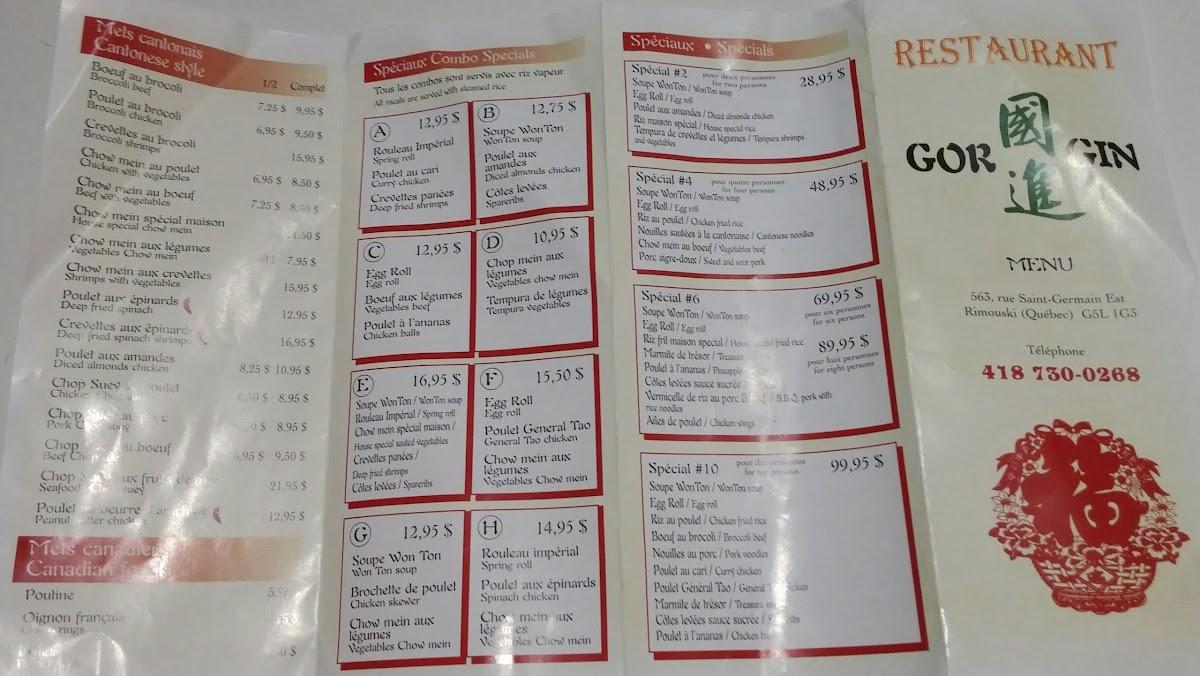 Mets cantonais
Cantonese style
1/2 Complet
Boeuf au brocoli
Broccoli beef
7,25 $ 9,95 $
Poulet au brocoli
Broccoli chicken
6,95 $ 9,50 $
Crevettes au brocoli
Broccoli shrimps
15,95 $
Chow mein au poulet
Chicken with vegetables
6,95 $ 8,50 $
Chow mein au boeuf
Beef with vegetables
7,25 $ 8,50 $
Chow mein spécial maison
House special chow mein
Chow mein aux légumes
Vegetables Chow mein
7,95 $
Chow mein aux crevettes
Shrimps with vegetables
15,95 $
Poulet aux épinards
Deep fried spinach
12,95 $
Crevettes aux épinards
Deep fried spinach shrimps
16,95 $
Poulet aux amandes
Diced almonds chicken
8,25 $ 10,95 $
Chop Suey poulet
8,95 $
Chop au porc
Pork
8,95 $
Chop au boeuf
Beef
6,95 $ 9,50 $
Chop aux fruits de
Seafood
21,95 $
Poulet beurre
Peanut chicken
12,95 $
Mets canadiens
Canadian
Poutine
Oignon français
rings
Spéciaux Combo Specials
Tous les combos sont servis avec riz vapeur
All meals are served with steamed rice
A 12,95 $
Rouleau Impérial
Spring roll
Poulet au cari
Curry chicken
Crevettes panées
Deep fried shrimps
B 12,75 $
Soupe WonTon
WonTon soup
Poulet aux
amandes
Diced almonds chicken
Côtes levées
Spareribs
C 12,95 $
Egg Roll
Egg roll
Boeuf aux légumes
Vegetables beef
Poulet à l'ananas
Chicken balls
D 10,95 $
Chop mein aux
légumes
Vegetables chow mein
Tempura de légumes
Tempura vegetables
E 16,95 $
Soupe WonTon / WonTon soup
Rouleau Impérial / Spring roll
Chow mein spécial maison /
House special sauted vegetables
Crevettes panées /
Deep fried shrimps
Côtes levées / Spareribs
F 15,50 $
Egg Roll
Egg roll
Poulet Genéral Tao
General Tao chicken
Chow mein aux
légumes
Vegetables Chow mein
G 12,95 $
Soupe Won Ton
Won Ton soup
Brochette de poulet
Chicken skewer
Chow mein aux
légumes
Vegetables Chow mein
H 14,95 $
Rouleau impérial
Spring roll
Poulet aux épinards
Spinach chicken
Chow mein aux
légumes
Vegetables Chow mein
Spéciaux • Specials
Spécial #2 pour deux personnes 28,95 $
for two persons
Soupe WonTon / WonTon soup
Egg Roll / Egg roll
Poulet aux amandes / Diced almonds chicken
Riz maison spécial / House special rice
Tempura de crevettes et légumes / Tempura shrimps
and vegetables
Spécial #4 pour quatre personnes 48,95 $
for four persons
Soupe WonTon / WonTon soup
Egg Roll / Egg roll
Riz au poulet / Chicken fried rice
Nouilles sautées à la cantonaise / Cantonese noodles
Chow mein au boeuf / Vegetables beef
Porc aigre-doux / Sweet and sour pork
Spécial #6 69,95 $
pour six persons
for six persons
Soupe WonTon / WonTon soup
Egg Roll / Egg roll
Riz frit maison special / House special fried rice
89,95 $
pour huit personnes
for eight persons
Marmite de trésor / Treasure
Poulet à l'ananas / Pineapple
Côtes levées sauce sucrée
Vermicelle de riz au porc B.B.Q. / B.B.Q. pork with
rice noodles
Ailes de poulet / Chicken wings
Spécial #10 pour dix personnes 99,95 $
for ten persons
Soupe WonTon / WonTon soup
Egg Roll / Egg roll
Riz au poulet / Chicken fried rice
Boeuf au brocoli / Broccoli beef
Nouilles au porc / Pork noodles
Poulet au cari / Curry chicken
Poulet Général Tao / General chicken
Marmite de trésor / Treasure
Côtes levées sauce sucrée
Poulet à l'ananas / Chicken
RESTAURANT
GOR 國進 GIN
MENU
563, rue Saint-Germain Est
Rimouski (Québec) G5L 1G3
Téléphone
418 730-0268
福